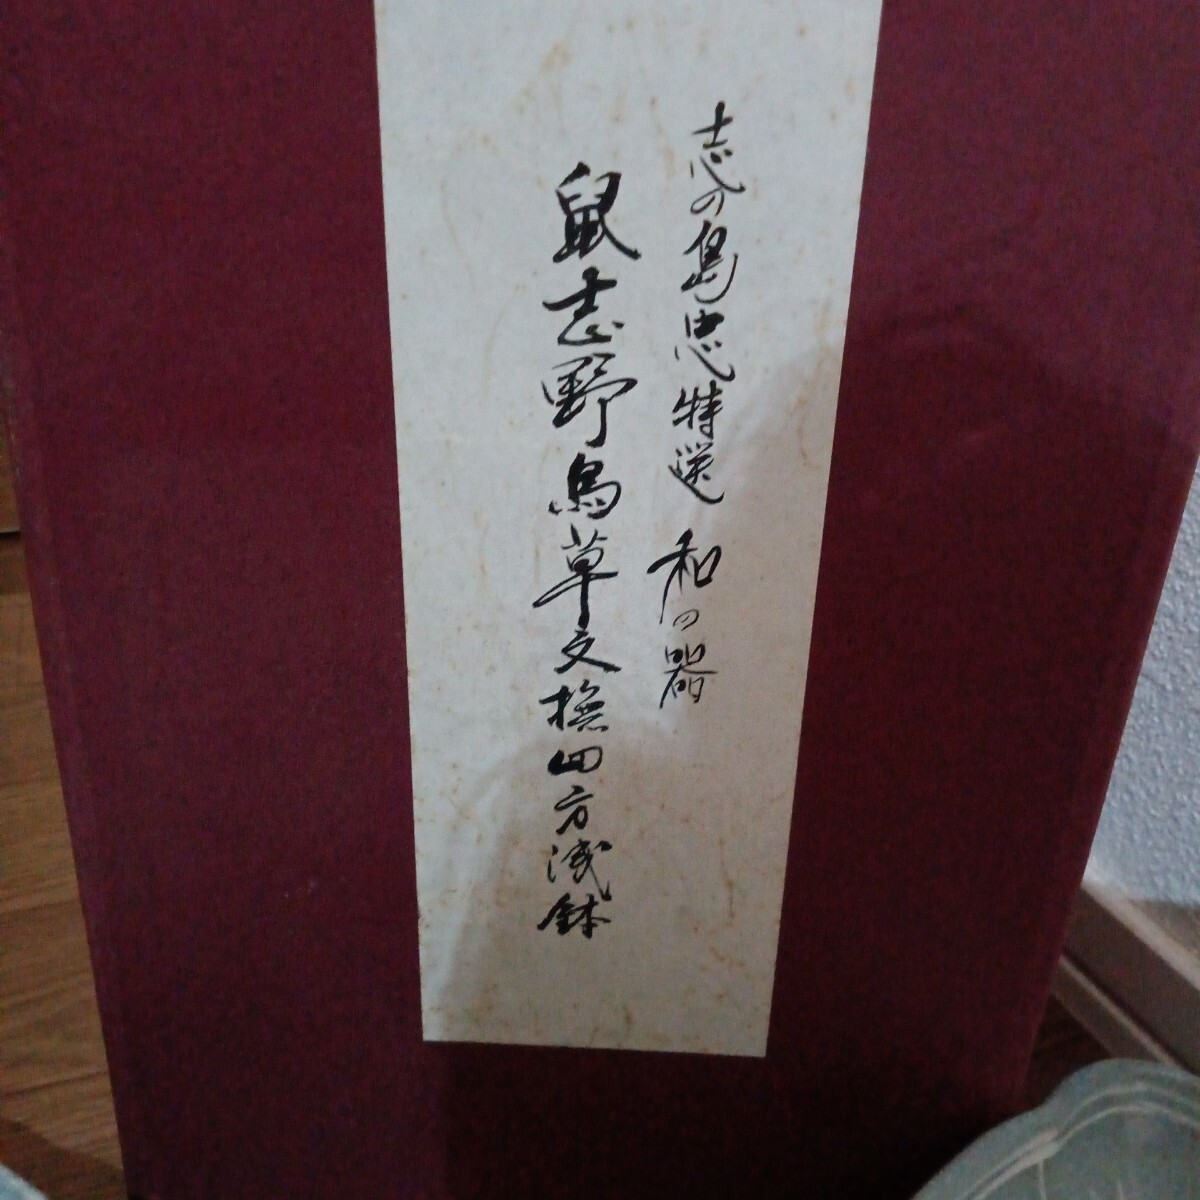 志の島忠特選 和の器
鼠志野鳥草文撫四方浅鉢